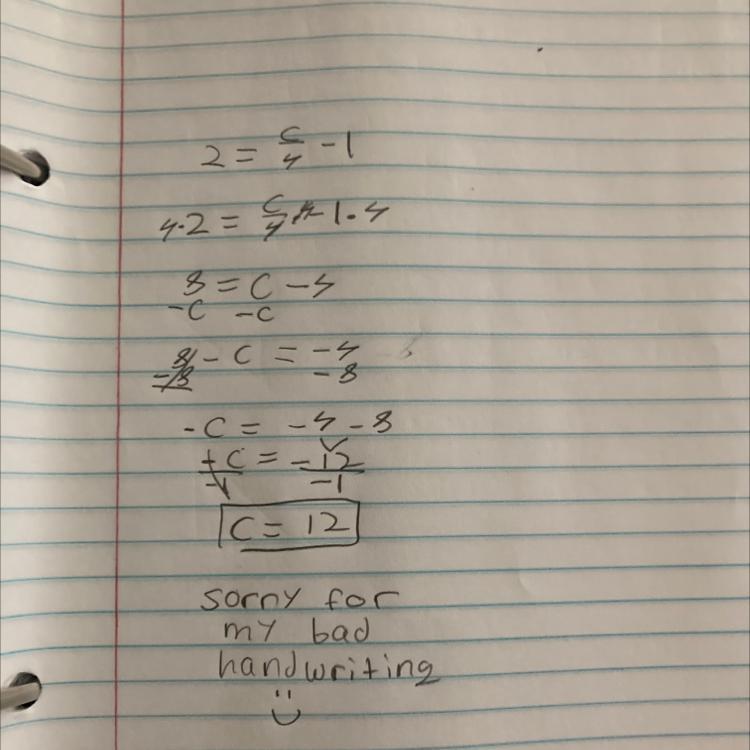 2 = c/4 - 1
4·2 = c/4·4 - 1·4
8 = c - 4
-c -c
8 - c = -4
-8 -8
-c = -4 - 8
-c/-1 = -12/-1
c = 12
sorry for
my bad
handwriting
:)